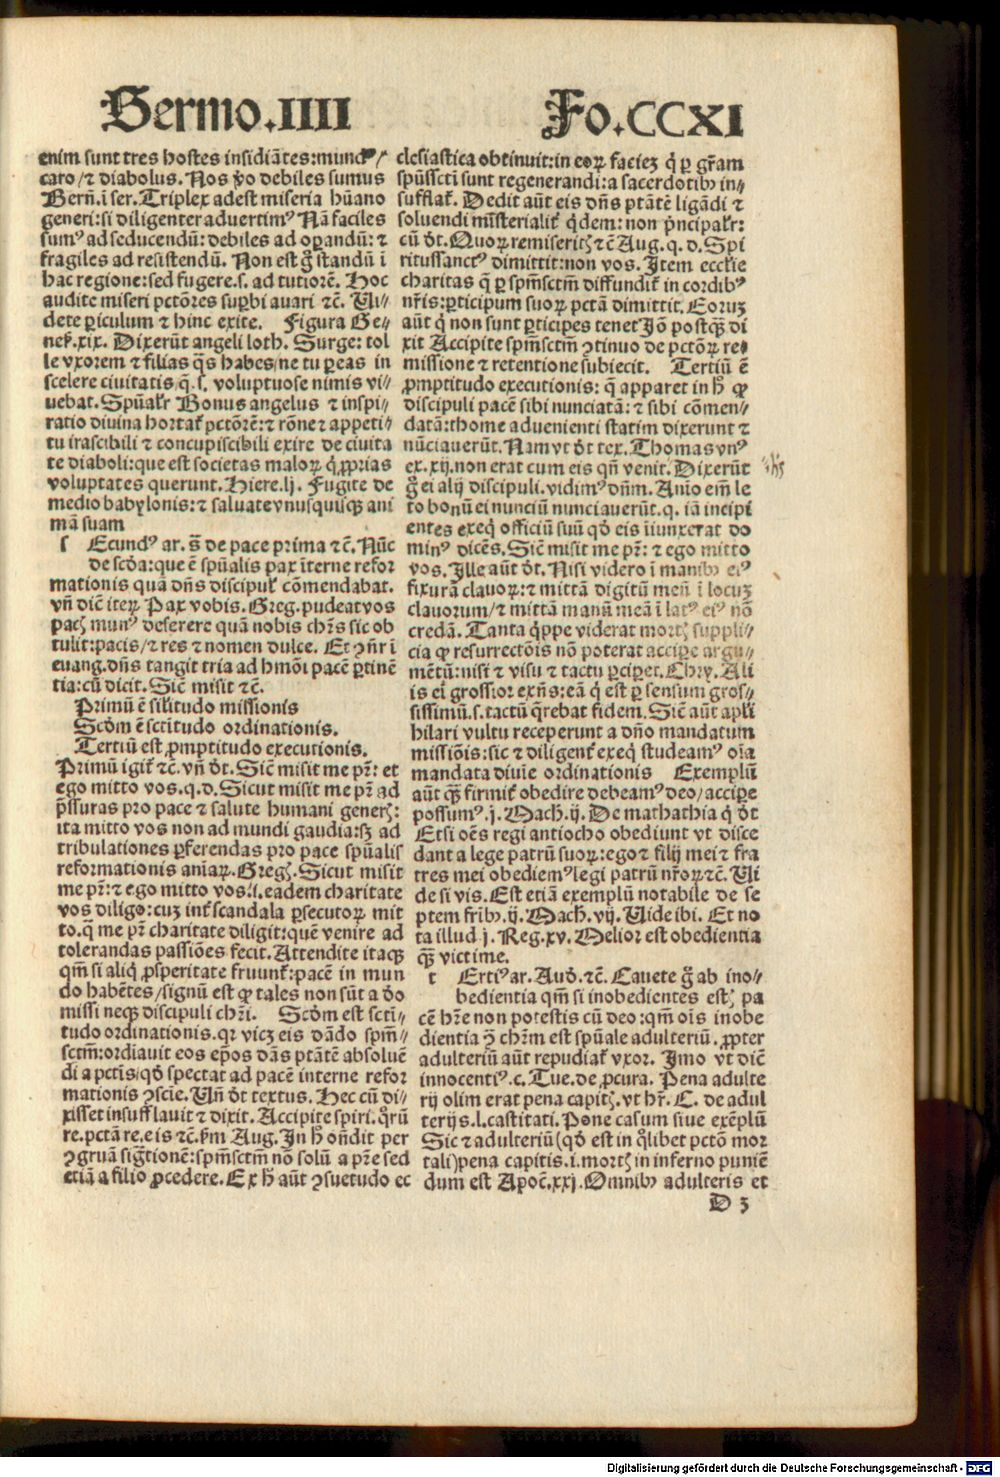 Sermo.IIII
Fo.CCXI
enim sunt tres hostes insidiãtes:mundꝰ/
caro/⁊ diabolus. Nos ṽo debiles sumus
Berñ.ĩ ser. Triplex adest miseria hũano
generi:si diligenter advertimꝰ Nã faciles
sumꝰ ad seducendũ:debiles ad oꝑandũ:⁊
fragiles ad resistendũ. Non est g̃ standũ ĩ
hac regione:sed fugere.s. ad tutiorẽ. Hoc
audite miseri pctõres suꝑbi auari ⁊c̃. Vi⸗
dete ꝑiculum ⁊ hinc exite. Figura Ge⸗
neẜ.xix. Dixerũt angeli loth. Surge: tol
le vxorem ⁊ filias q̃s habes/ne tu ꝑeas in
scelere ciuitatis/q̃.s. voluptuose nimis vi⸗
uebat. Spũalr̃ Bonus angelus ⁊ inspi⸗
ratio diuina hortať pctõrẽ:⁊ rõne ⁊ appeti⸗
tu irascibili ⁊ concupiscibili exire de ciuita
te diaboli:que est societas maloꝝ q̃ ꝓprias
voluptates querunt. Hiere.lj. Fugite de
medio babylonis:⁊ saluate vnusquisqꝫ ani
mã suam
s Ecundꝰ ar. s̃ de pace prima ⁊c̃. Nũc
de scḋa:que ẽ spũalis pax ĩterne refor
mationis quã dñs discipuľ cõmendabat.
vñ dic̃ iteꝝ Pax vobis. Greg. pudeat vos
pacꝭ munꝰ deserere quã nobis chr̃s sic ob
tulit:pacis/⁊ res ⁊ nomen dulce. Et ꝯñr ĩ
euang.dñs tangit tria ad hmõi pacẽ ꝑtinẽ
tia:cũ dicit. Sic̃ misit ⁊c̃.
Primũ ẽ sil̃itudo missionis
Scḋm ẽ sctĩtudo ordinationis.
Tertiũ est ꝓmptitudo executionis.
Primũ igiť ⁊c̃. vñ ḋt. Sic̃ misit me pr̃: et
ego mitto vos.q.d. Sicut misit me pr̃ ad
p̃ssuras pro pace ⁊ salute humani generꝭ:
ita mitto vos non ad mundi gaudia:sꝫ ad
tribulationes ꝑferendas pro pace spũalis
reformationis anĩaꝝ. Gregꝭ. Sicut misit
me pr̃:⁊ ego mitto vos.i. eadem charitate
vos diligo:cuꝫ inť scandala ꝑsecutoꝝ mit
to.q̃ me pr̃ charitate diligit:quẽ venire ad
tolerandas passiões fecit. Attendite itaqꝫ
qm̃ si aliq̃ ꝓsperitate fruunť:pacẽ in mun
do habẽtes/signũ est ꝙ tales non sũt a ḋo
missi neqꝫ discipuli chr̃i. Scḋm est sctĩ⸗
tudo ordinationis.qr vicꝫ eis dãdo spm̃⸗
sctm̃:ordiauit eos ep̃os dãs ptãtẽ absoluẽ
di a pctĩs/qḋ spectat ad pacẽ interne refor
mationis ꝯscĩe. Vñ ḋt textus. Hec cũ di⸗
xisset insufflauit ⁊ dixit. Accipite spiri. q̊rũ
re.pctã re.eis ⁊c̃. ẜm Aug. In h̊ oñdit per
ꝯgruã sig̃tionẽ:spm̃sctm̃ nõ solũ a pr̃e sed
etiã a filio ꝓcedere. Ex h̊ aũt ꝯsuetudo ec
clesiastica obtinuit:in eoꝝ faciez q̇ ꝑ gr̃am
spũssctĩ sunt regenerandi:a sacerdotibꝰ in⸗
sufflať. Dedit aũt eis dñs ptãtẽ ligãdi ⁊
soluendi mĩsterialiť q̇dem: non p̃ncipalr̃:
cũ ḋt. Quoꝝ remiseritꝭ ⁊c̃ Aug. q. d. Spi
ritussanctꝰ dimittit:non vos. Item eccl̃ie
charitas q̃ ꝑ spm̃sctm̃ diffundiť in cordibꝰ
nr̃is:ꝑticipum suoꝝ pctã dimittit. Eoruꝫ
aũt q̇ non sunt ꝑticipes tenet Iõ postqꝫ di
xit Accipite spm̃sctm̃ ꝯtinuo de pctõꝝ re⸗
missione ⁊ retentione subiecit. Tertiũ ẽ
ꝓmptitudo executionis: q̃ apparet in h̊ ꝙ
discipuli pacẽ sibi nunciatã:⁊ sibi cõmen⸗
datã:thome aduenienti statim dixerunt ⁊
nũciauerũt. Nam vt ḋt tex. Thomas vnꝰ
ex.xij.non erat cum eis qñ venit. Dixerũt
g̃ ei alij discipuli.vidimꝰ dñm. Anĩo em̃ le
to bonũ ei nunciũ nunciauerũt.q. iã incipi
entes exeq̇ officiũ suũ qḋ eis iniunxerat do
minꝰ dicẽs. Sic̃ misit me pr̃: ⁊ ego mitto
vos. Ille aũt ḋt. Nisi videro ĩ manibꝰ eiꝰ
fixurã clauoꝝ:⁊ mittã digitũ meũ ĩ locuꝫ
clauorum/⁊ mittã manũ meã ĩ latꝰ eiꝰ nõ
credã. Tanta q̇ppe viderat mortꝭ suppli⸗
cia ꝙ resurrectõis nõ poterat accipe argu⸗
mẽtũ:nisi ⁊ visu ⁊ tactu ꝑciperet. Chry. Ali
is eĩ grossior exñs:eã q̇ est ꝑ sensum gros⸗
sissimũ.s.tactũ q̃rebat fidem. Sic̃ aũt apľi
hilari vultu receperunt a dño mandatum
missiõis:sic ⁊ diligenť exeq̇ studeamꝰ oĩa
mandata diuĩe ordinationis Exemplũ
aũt qꝫ firmiť obedire debeamꝰ deo/accipe
possumꝰ.j. Mach.ij. De mathathia q̇ ḋt
Etsi oẽs regi antiocho obediunt vt disce
dant a lege patrũ suoꝝ:ego ⁊ filij mei ⁊ fra
tres mei obediemꝰ legi patrũ nr̃oꝝ ⁊c̃. Vi
de si vis. Est etiã exemplũ notabile de se
ptem fr̃ibꝰ.ij. Mach. vij. Vide ibi. Et no
ta illud j. Reg.xv. Melior est obedientia
qꝫ victime.
t Ertiꝰ ar. Auḋ. ⁊c̃. Cauete g̃ ab ino⸗
bedientia qm̃ si inobedientes estꝭ pa
cẽ hr̃e non potestis cũ deo:qm̃ oĩs inobe
dientia ꝯ̃ chr̃m est spũale adulteriũ. ꝓpter
adulteriũ aũt repudiať vxor. Imo vt dic̃
innocentiꝰ.c. Tue.de ꝓcura. Pena adulte
rij olim erat pena capitꝭ. vt hr̃. C. de adul
terijs.l.castitati. Pone casum siue exẽplũ
Sic ⁊ adulteriũ(qḋ est in q̊libet pctõ mor
tali)pena capitis.i.mortꝭ in inferno puniẽ
dum est Apoc̃.xxj. Omnibꝰ adulteris et
D 3
Digitalisierung gefördert durch die Deutsche Forschungsgemeinschaft - DFG